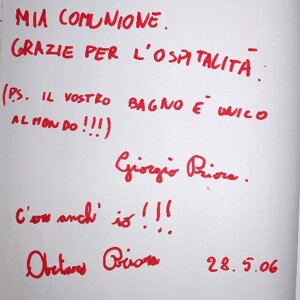 MIA COMUNIONE.
GRAZIE PER L'OSPITALITÀ.
(PS. IL VOSTRO BAGNO È UNICO
AL MONDO!!!)
Giorgio Priora
C'ero anch' io!!!
Priora 28.5.06